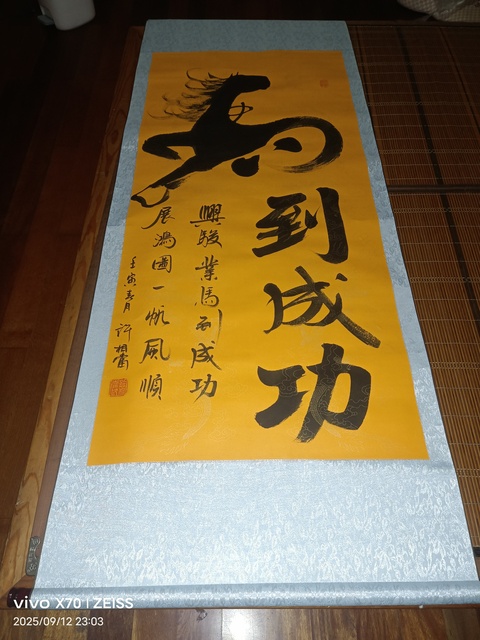 馬到成功
興駿業馬到成功
展鴻圖一帆風順
壬寅春月
vivo X70 | ZEISS
2025/09/12 23:03